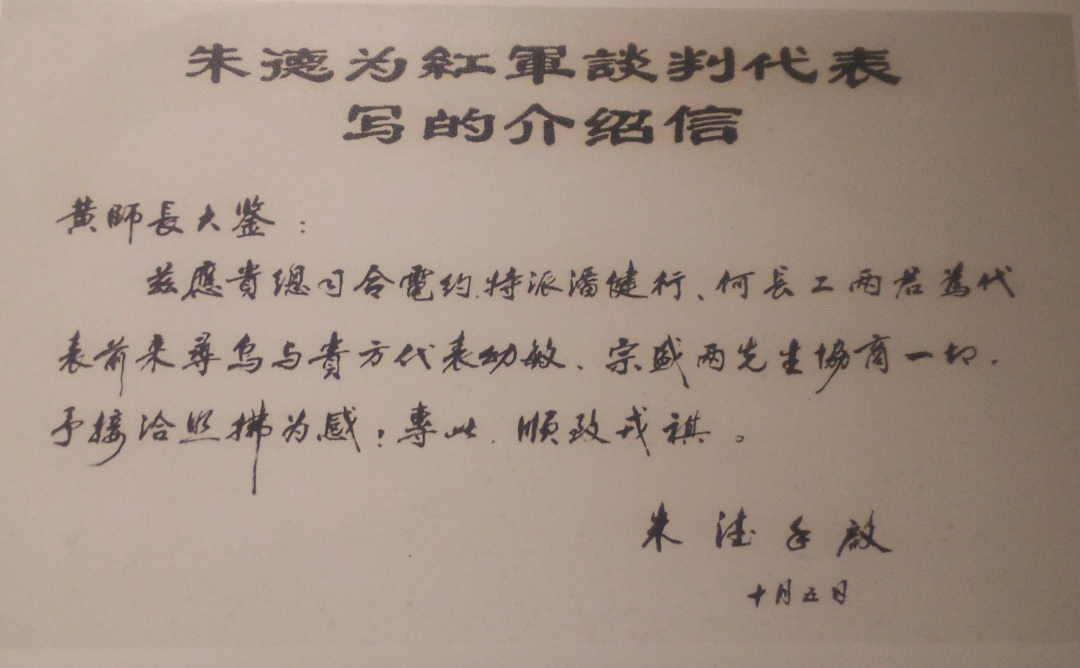 朱德为紅軍談判代表
写的介绍信
黄師長大鉴：
兹應貴總司令電約，特派潘健行、何長工两君為代
表前来尋烏与貴方代表幼敏、宗盛两先生協商一切，
予接洽照拂为感；專此，順致戎祺。
朱德手啟
十月五日